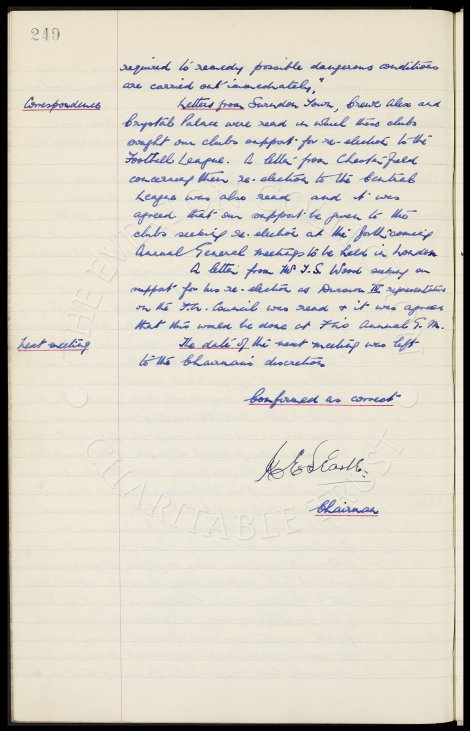 249
required to remedy possible dangerous conditions
are carried out immediately."
Correspondence
Letters from Swindon Town, Crewe Alex and
Crystal Palace were read in which these clubs
sought our clubs support for re-election to the
Football League. A letter from Chesterfield
concerning their re-election to the Central
League was also read and it was
agreed that our support be given to the
clubs seeking re-election at the forthcoming
Annual General Meetings to be held in London
A letter from Mr. F.S. Wood seeking our
support for his re-election as Division representative
on the F.A. Council was read & it was agreed
that this would be done at their Annual G.M.
Next meeting
The date of the next meeting was left
to the Chairman's discretion
Confirmed as correct
Chairman
THE EVERTON
CHARITABLE TRUST